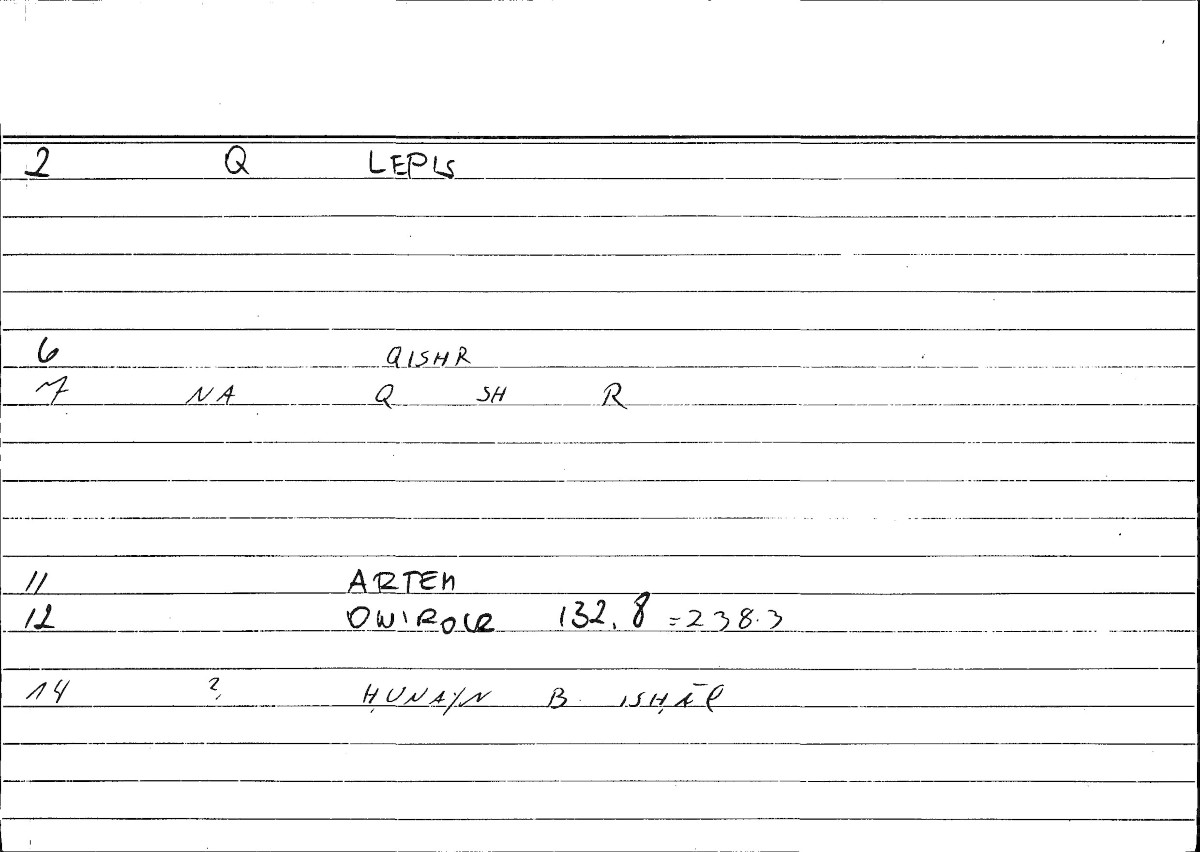 2 Q LEPIS
6 QISHR
7 NA Q SH R
11 ARTEM
12 ONIROCR 132.8 =238.3
14 ? ḤUNAYN B. ISḤĀQ